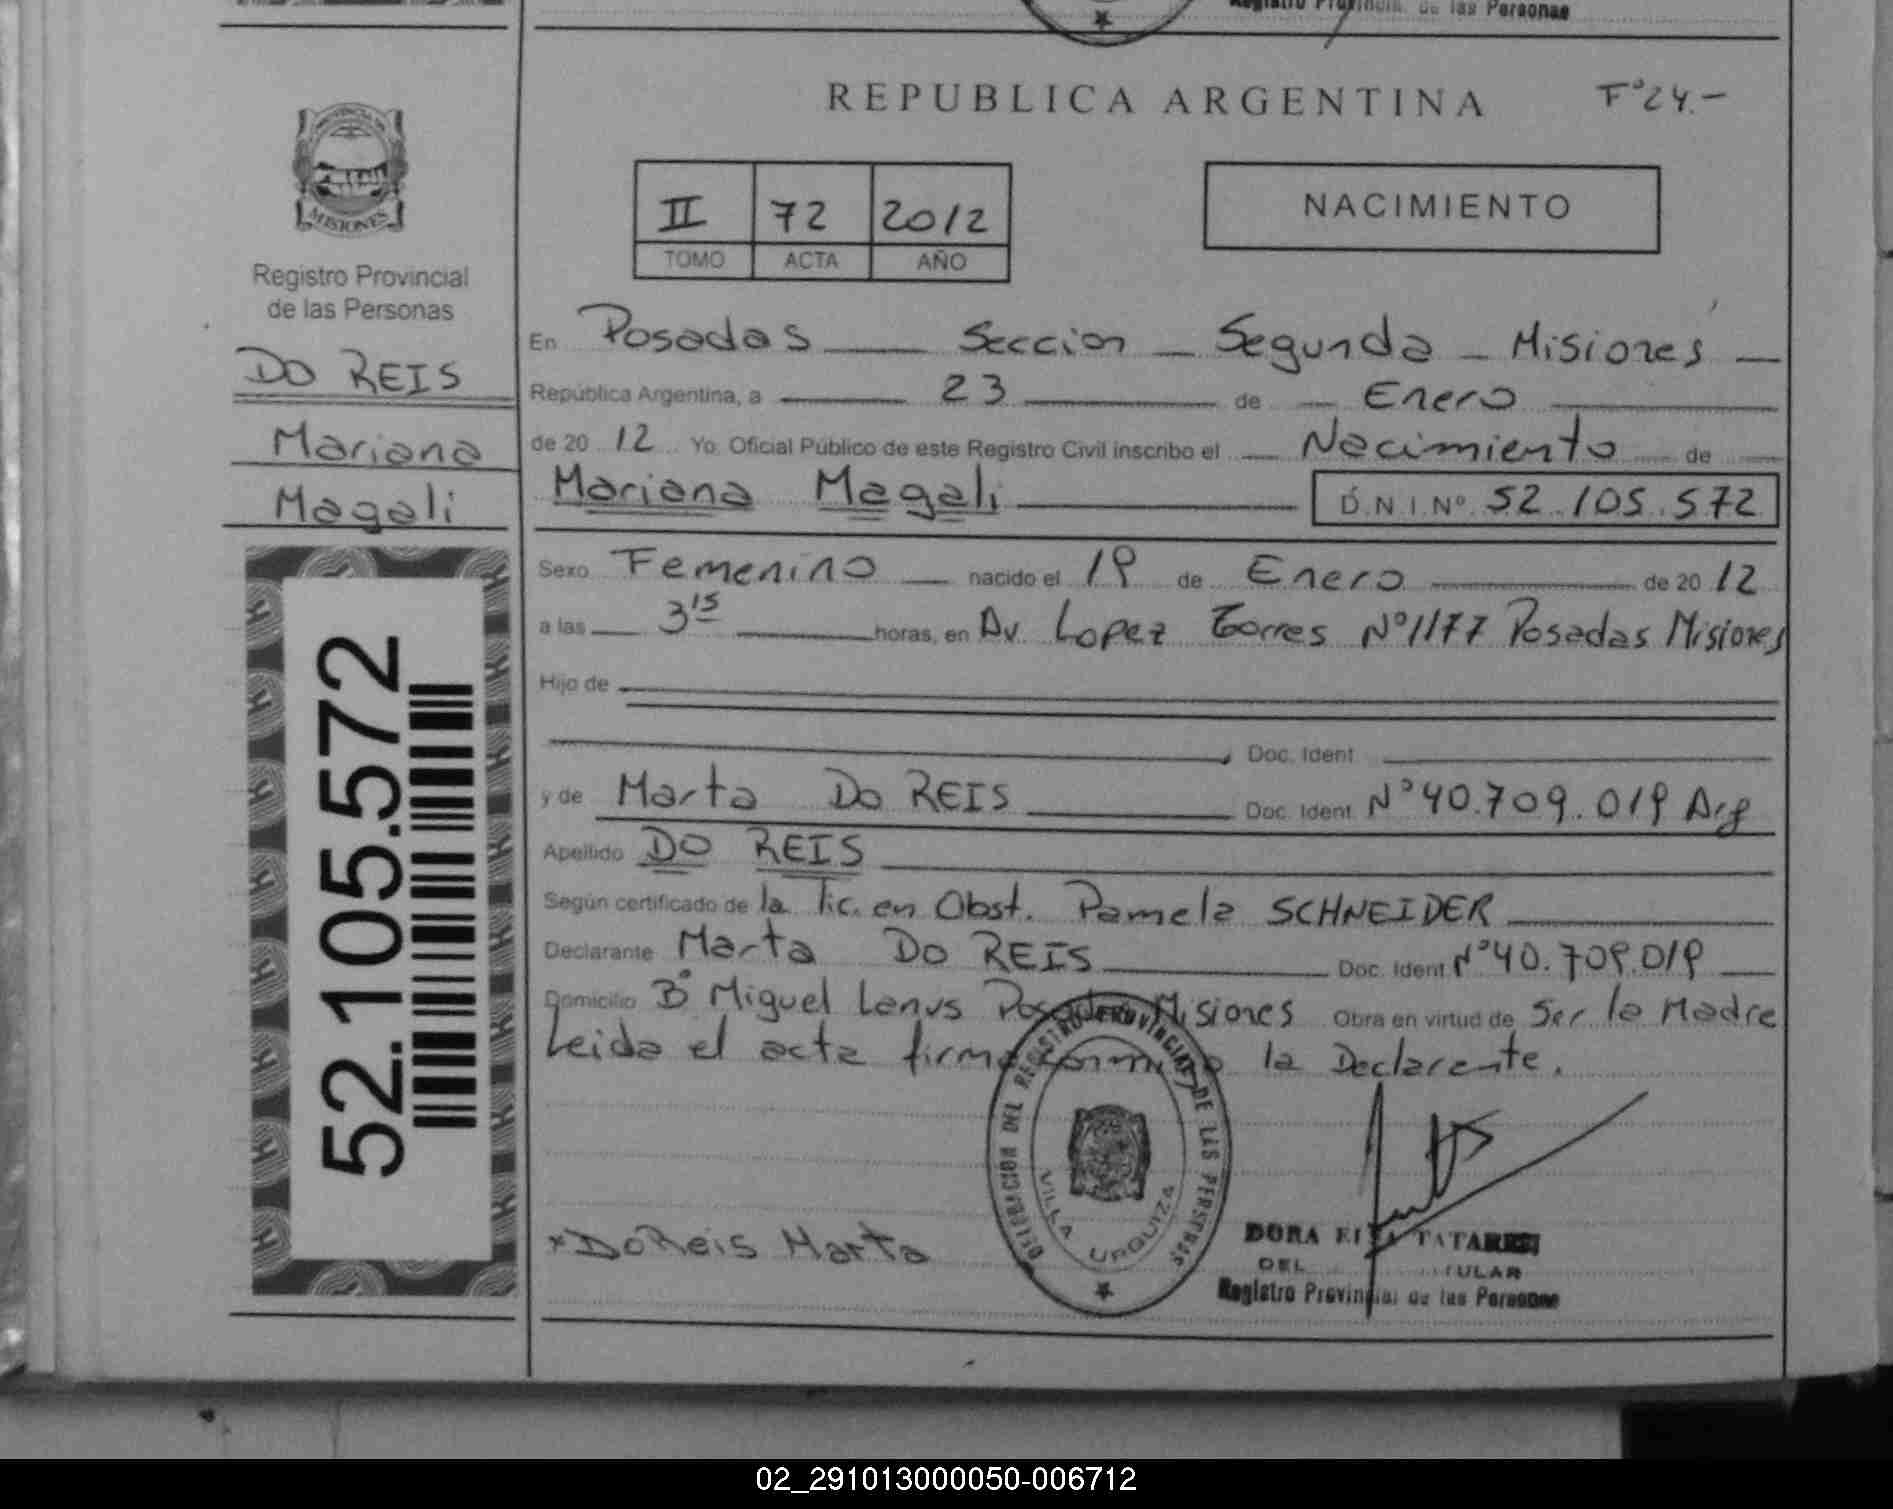 Registro Provincial de las Personas
REPUBLICA ARGENTINA
Fº 24.-
PROVINCIA DE
MISIONES
Registro Provincial
de las Personas
DO REIS
Mariana
Magali
52.105.572
II 72 2012
TOMO ACTA AÑO
NACIMIENTO
En Posadas Seccion Segunda Misiones
República Argentina, a 23 de Enero
de 20 12 Yo, Oficial Público de este Registro Civil inscribo el Nacimiento de
Mariana Magali D.N.I.Nº 52.105.572
Sexo Femenino nacido el 19 de Enero de 20 12
a las 3 15 horas, en Av. Lopez Torres Nº 1177 Posadas Misiones
Hijo de
Doc. Ident.
y de Marta Do REIS Doc. Ident. Nº 40.709.019 Arg
Apellido DO REIS
Según certificado de la Lic. en Obst. Pamela SCHNEIDER
Declarante Marta Do REIS Doc. Ident. Nº 40.709.019
Domicilio Bº Miguel Lanus Posadas Misiones Obra en virtud de Ser la Madre
Leida el acta firma conmigo la Declarante.
DELEGACION DEL REGISTRO PROVINCIAL DE LAS PERSONAS
VILLA URQUIZA
x Do Reis Marta
DORA
Registro Provincial de las Personas
02_291013000050-006712